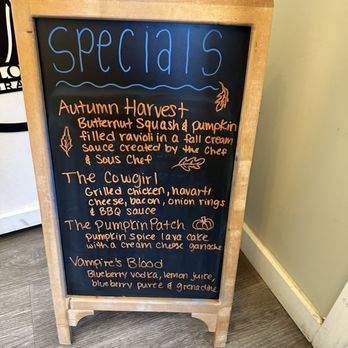 Specials
Autumn Harvest
Butternut Squash & pumpkin
filled ravioli in a fall cream
sauce created by the Chef
& Sous Chef
The Cowgirl
Grilled chicken, navarti
cheese, bacon, onion rings
& BBQ sauce
The Pumpkin Patch
pumpkin spice lava cake
with a cream cheese ganache
Vampire's Blood
Blueberry vodka, lemon juice,
blueberry puree & grenadine